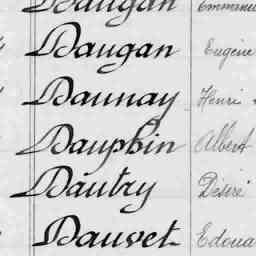 Daugan Emmanuel
Daugan Eugène
Daunay Henri
Dauphin Albert
Dautry Désiré
Dauvet Edoua